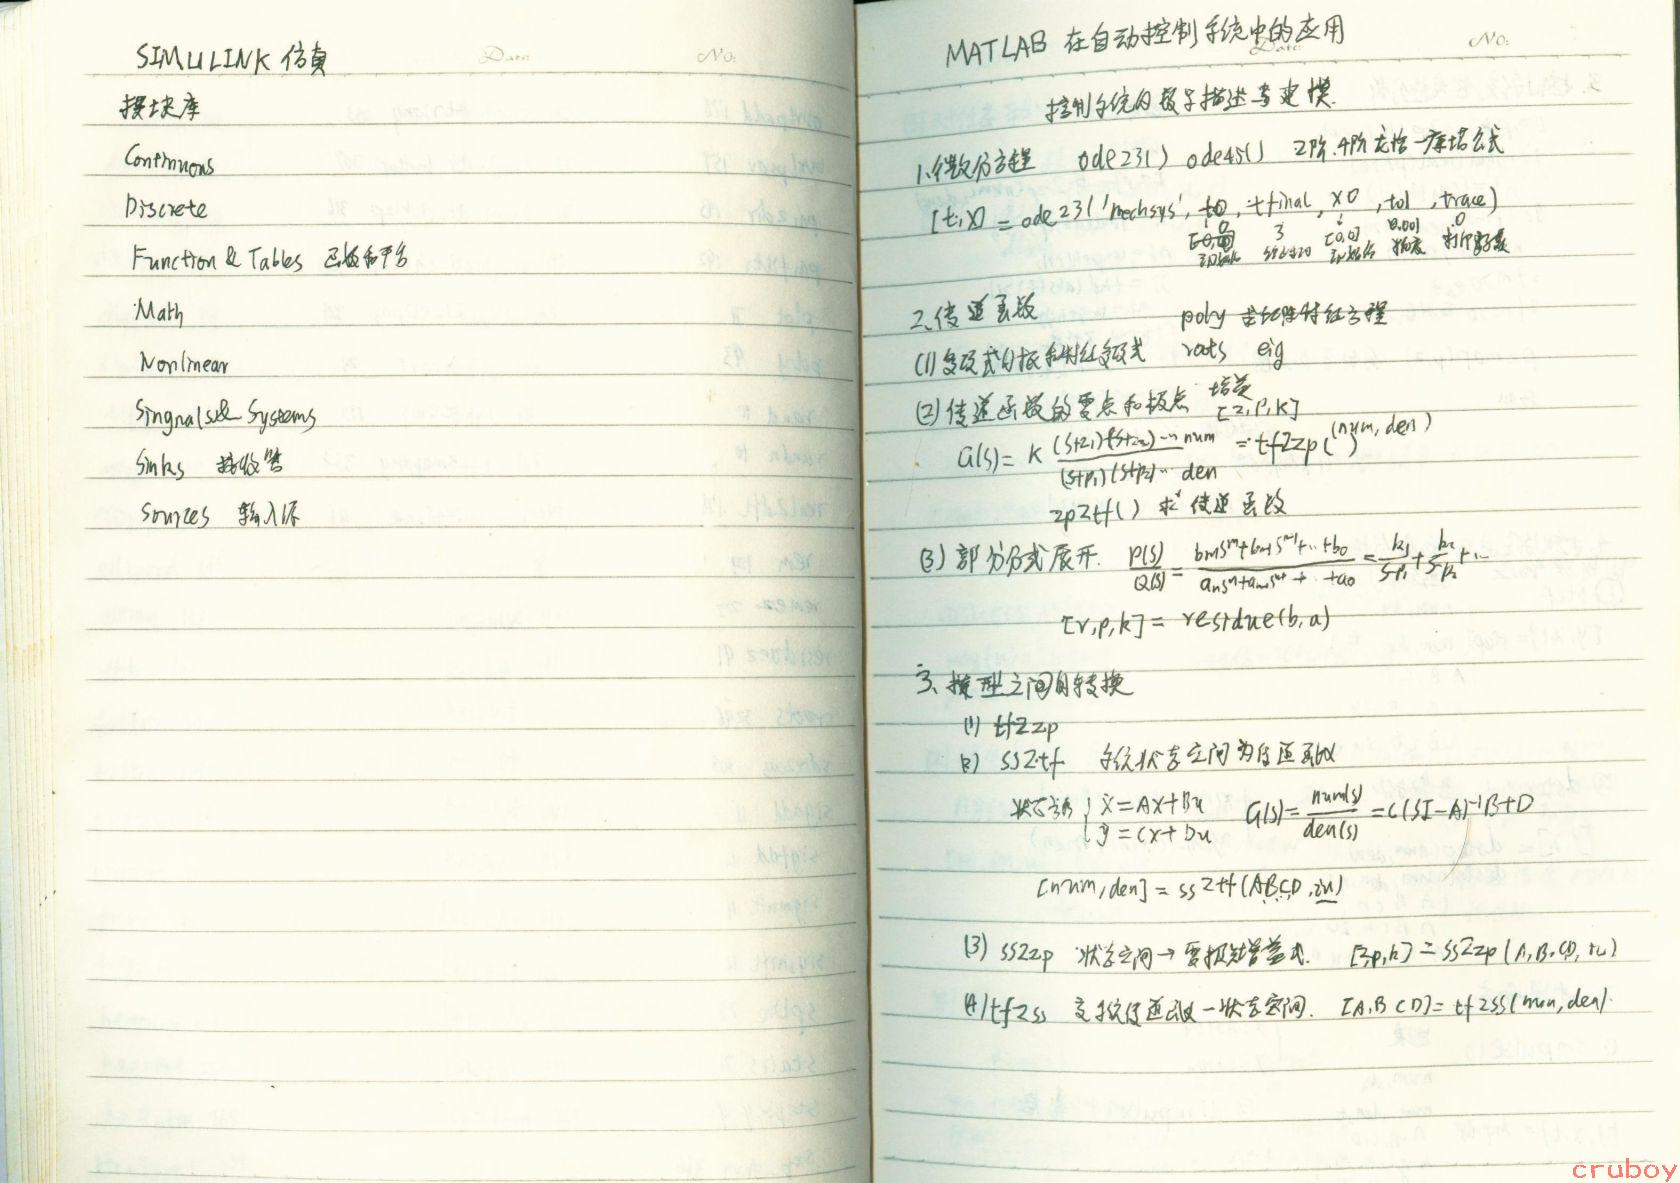 SIMULINK 仿真
模块库
Continuous
Discrete
Function & Tables 函数和平台
Math
Nonlinear
Singnals & Systems
Sinks 接收器
Sources 输入源
MATLAB 在自动控制系统中的应用
控制系统的数学描述与建模
1. 微分方程 ode23() ode45() 2阶.4阶龙格—库塔公式
[t,x] = ode23('mechsys', t0, tfinal, x0, tol, trace)
0 3 [0,0] 0.001 0
初始值 精度
2. 传递函数 poly 求矩阵特征方程
(1) 多项式的根和特征多项式 roots eig
(2) 传递函数的零点和极点 增益
[z,P,K]
G(s) = K (s+z1)(s+z2)… num / (s+p1)(s+p2)… den = tf2zp(num, den)
zp2tf() 求传递函数
(3) 部分分式展开. P(s)/Q(s) = bmS^m+bm-1S^m-1+…+b0 / anS^n+an-1S^n-1+…+a0 = k1/S-P1 + k2/S-P2 +…
[r,p,k] = residue(b,a)
3. 模型之间的转换
(1) tf2zp
(2) ss2tf 系统状态空间为传递函数
状态方程 { ẋ = Ax+Bu G(s) = num(s)/den(s) = C(SI-A)^-1B+D
y = Cx+Du
[num, den] = ss2tf(ABCD, iu)
(3) ss2zp 状态空间→零极点增益式. [z,p,k] = ss2zp(A,B,C,D, iu)
(4) tf2ss 变系统传递函数—状态空间. [A,B C D] = tf2ss(num, den)
No:
Date
No:
cruboy